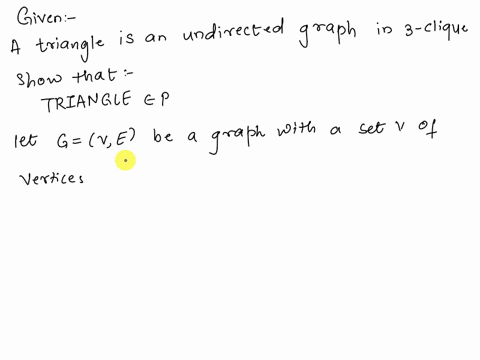 Given:-
A triangle is an undirected graph in 3-clique
Show that:-
TRIANGLE ∈ P
let G = (V, E) be a graph with a set V of
Vertices